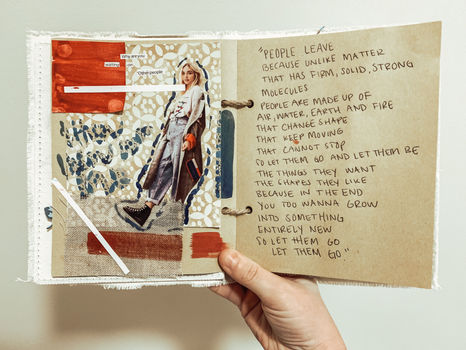 Why are you
waiting on
Other people
"PEOPLE LEAVE
BECAUSE UNLIKE MATTER
THAT HAS FIRM, SOLID, STRONG
MOLECULES
PEOPLE ARE MADE UP OF
AIR, WATER, EARTH AND FIRE
THAT CHANGE SHAPE
THAT KEEP MOVING
THAT CANNOT STOP
SO LET THEM GO AND LET THEM BE
THE THINGS THEY WANT
THE SHAPES THEY LIKE
BECAUSE IN THE END
YOU TOO WANNA GROW
INTO SOMETHING
ENTIRELY NEW
SO LET THEM GO
LET THEM GO."